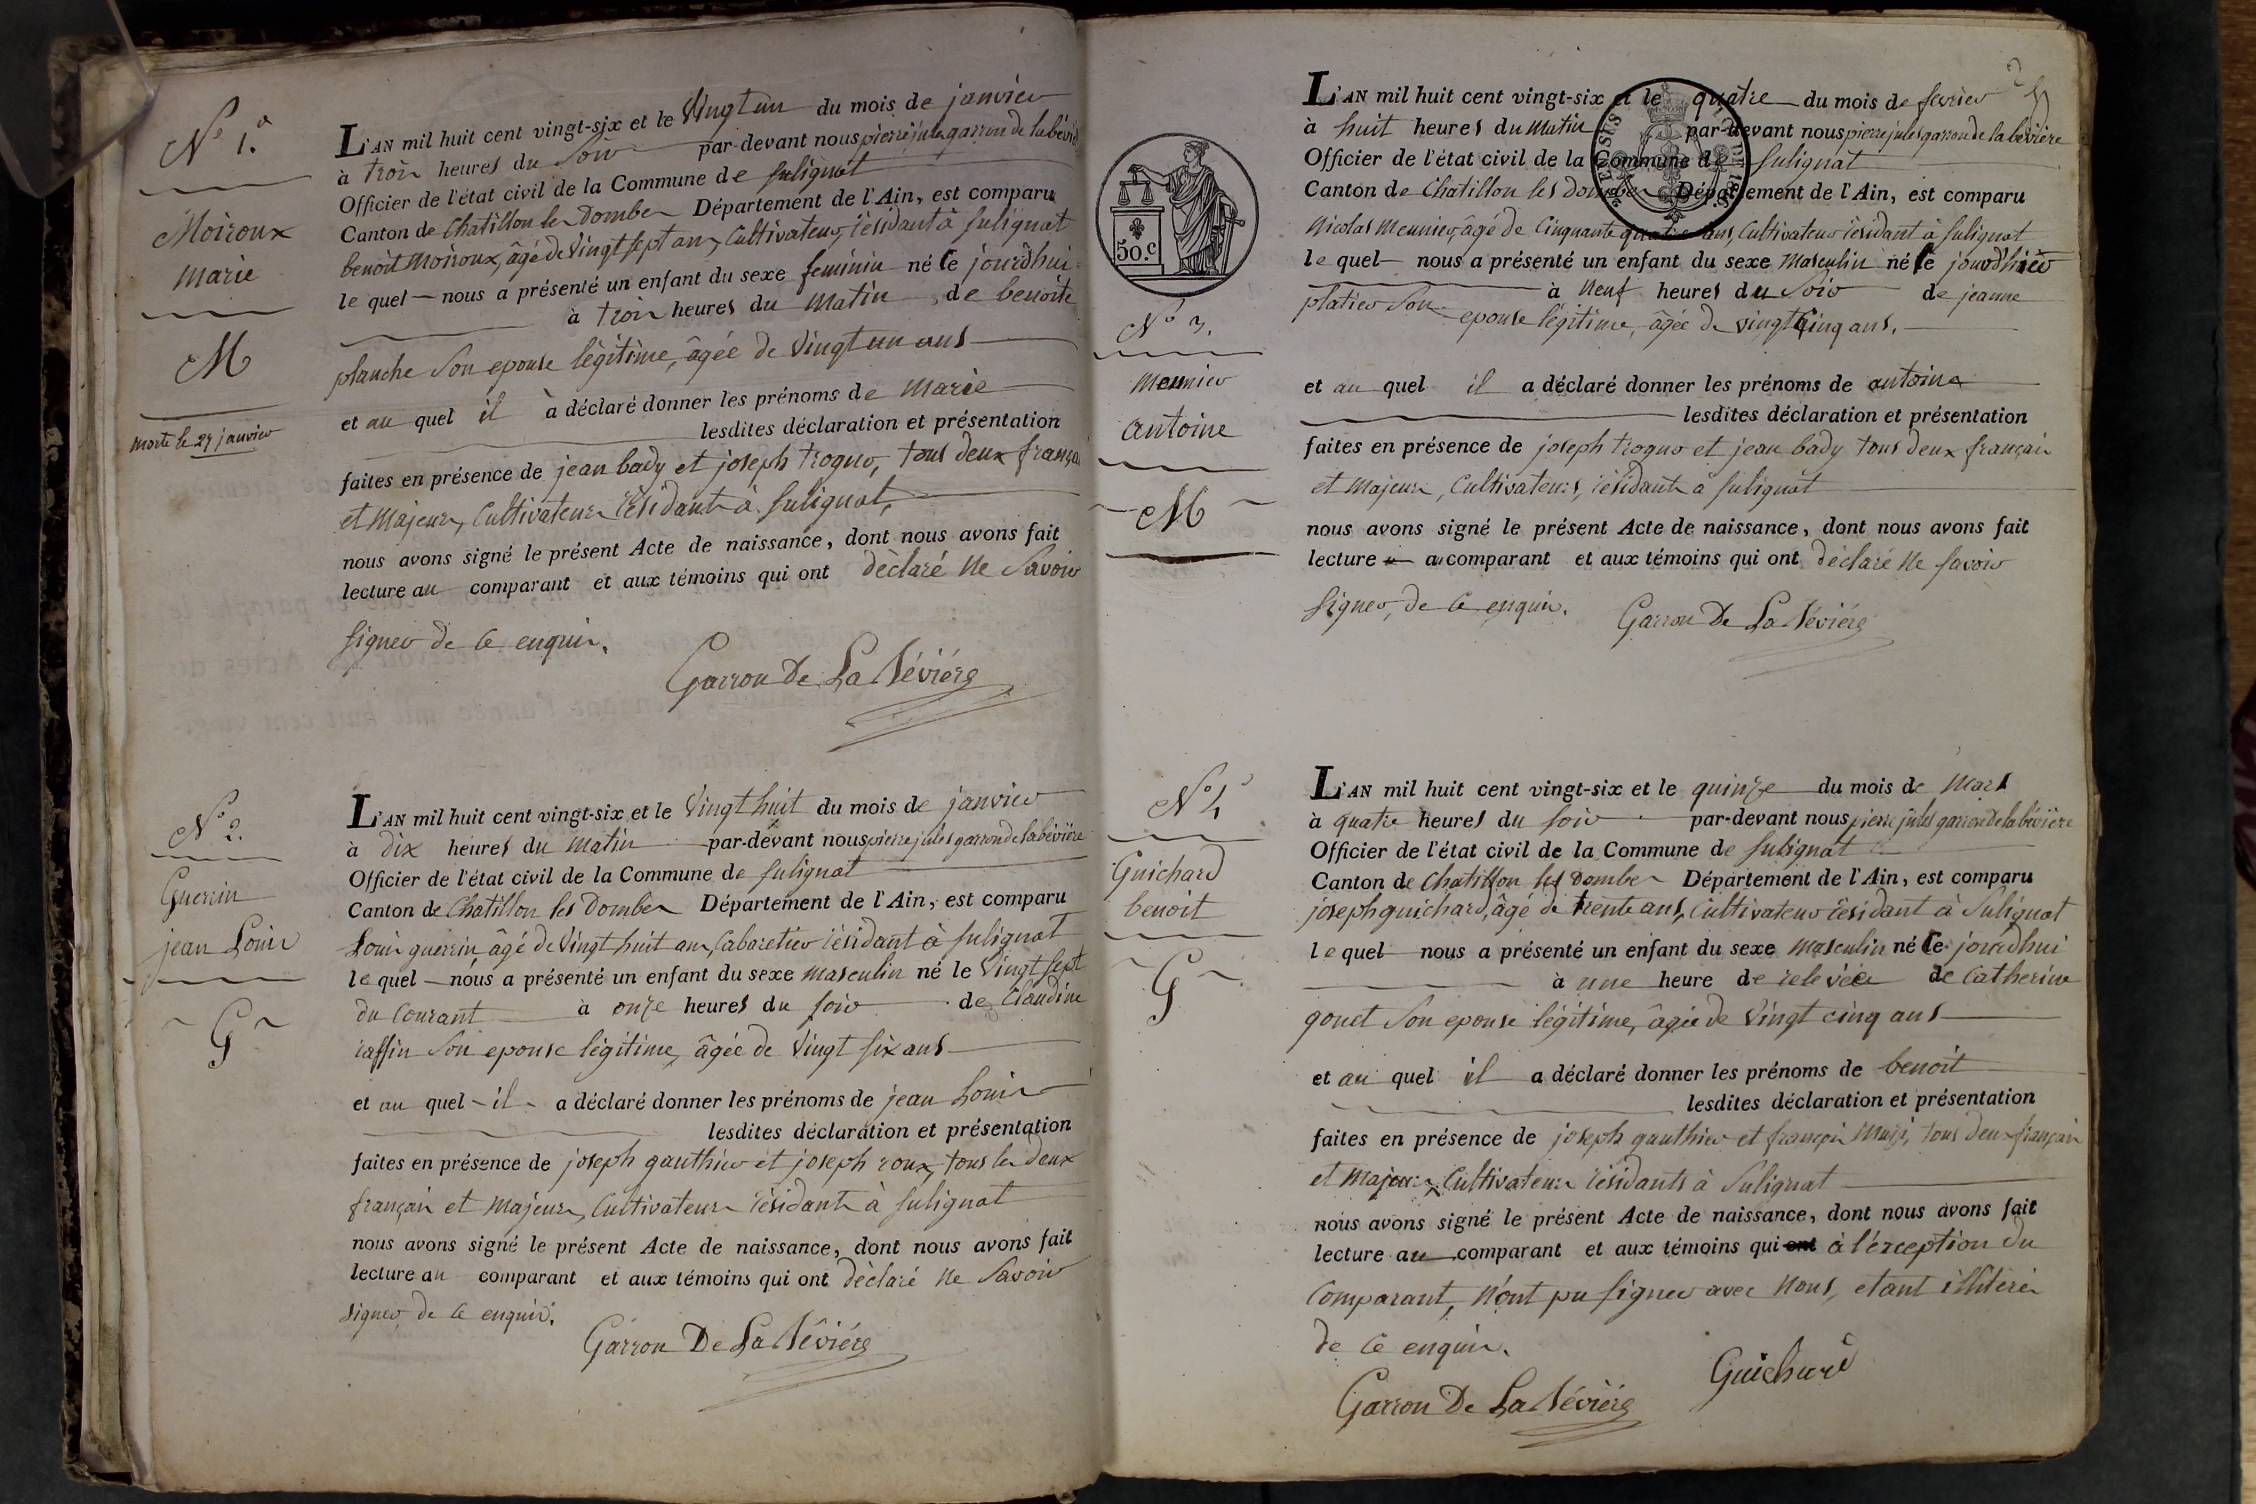 N° 1.
Moiroux
Marie
M
morte le 27 janvier
L'AN mil huit cent vingt-six et le Vingt un du mois de janvier
à trois heures du Soir par-devant nous pierre jules garron de la bévière
Officier de l'état civil de la Commune de Sulignat
Canton de Chatillon les Dombes Département de l'Ain, est comparu
benoit Moiroux, âgé de Vingt sept ans, Cultivateur, résidant à Sulignat
le quel nous a présenté un enfant du sexe feminin né le jourdhui
à trois heures du Matin de benoite
planche Son epouse légitime, âgée de Vingt un ans
et au quel il à déclaré donner les prénoms de Marie
lesdites déclaration et présentation
faites en présence de jean bady et joseph trogno, tous deux français
et Majeurs, Cultivateurs résidants à Sulignat,
nous avons signé le présent Acte de naissance, dont nous avons fait
lecture au comparant et aux témoins qui ont déclaré Ne Savoir
signer de ce enquis.
Garron De La Bévière
N° 2.
Guerrin
jean Louis
G
L'AN mil huit cent vingt-six et le Vingt huit du mois de janvier
à dix heures du Matin par-devant nous pierre jules garron de la bévière
Officier de l'état civil de la Commune de Sulignat
Canton de Chatillon les Dombes Département de l'Ain, est comparu
Louis guerrin âgé de Vingt huit ans, Cabaretier résidant à Sulignat
le quel nous a présenté un enfant du sexe masculin né le Vingt Sept
du Courant à onze heures du soir de Claudine
raffin Son epouse légitime, âgée de Vingt six ans
et au quel il a déclaré donner les prénoms de jean Louis
lesdites déclaration et présentation
faites en présence de joseph gauthier et joseph roux, tous les deux
français et Majeurs, Cultivateurs résidants à Sulignat
nous avons signé le présent Acte de naissance, dont nous avons fait
lecture au comparant et aux témoins qui ont déclaré Ne Savoir
signer, de ce enquis.
Garron De La Bévière
2
50.c
N° 3.
Meunier
antoine
M
L'AN mil huit cent vingt-six et le quatre du mois de fevrier
à huit heures du Matin par-devant nous pierre jules garron de la bévière
Officier de l'état civil de la Commune de Sulignat
Canton de Chatillon les dombes Département de l'Ain, est comparu
Nicolas Meunier, âgé de Cinquante quatre ans, Cultivateur résidant à Sulignat
le quel nous a présenté un enfant du sexe Masculin né le jourdhier
à Neuf heures du Soir de jeanne
platier Son epouse légitime, âgée de vingt Cinq ans,
et au quel il a déclaré donner les prénoms de antoine
lesdites déclaration et présentation
faites en présence de joseph trogno et jean bady tous deux français
et Majeurs, Cultivateurs, résidants à Sulignat
nous avons signé le présent Acte de naissance, dont nous avons fait
lecture au comparant et aux témoins qui ont déclaré Ne savoir
signer, de ce enquis.
Garron De La Bévière
N° 4
Guichard
benoit
G
L'AN mil huit cent vingt-six et le quinze du mois de Mars
à quatre heures du soir par-devant nous pierre jules garron de la bévière
Officier de l'état civil de la Commune de Sulignat
Canton de Chatillon les Dombes Département de l'Ain, est comparu
joseph guichard, âgé de trente ans, Cultivateur résidant à Sulignat
le quel nous a présenté un enfant du sexe masculin né le jourdhui
à une heure de relevée de Catherine
gonet Son epouse légitime, âgée de Vingt cinq ans
et au quel il a déclaré donner les prénoms de benoit
lesdites déclaration et présentation
faites en présence de joseph gauthier et françois tous deux français
et Majeurs, Cultivateurs résidants à Sulignat
nous avons signé le présent Acte de naissance, dont nous avons fait
lecture au comparant et aux témoins qui ont à l'exception du
Comparant, N'ont pu signer avec Nous, etant illiterés
de ce enquis.
Guichard
Garron De La Bévière